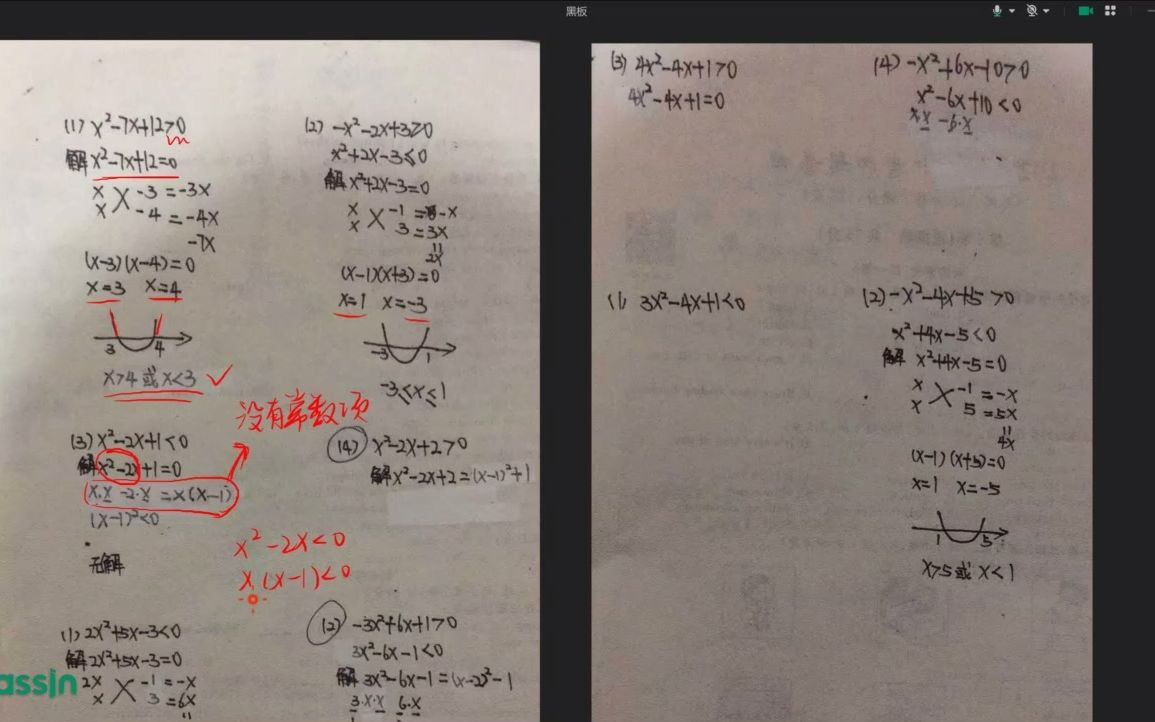 黑板
(1) x²-7x+12>0
解 x²-7x+12=0
x -3 =-3x
x -4 =-4x
-7x
(x-3)(x-4)=0
x=3 x=4
3 4
x>4 或 x<3 ✓
(2) -x²-2x+3≥0
x²+2x-3≤0
解 x²+2x-3=0
x -1 =-x
x 3 =3x
2x
(x-1)(x+3)=0
x=1 x=-3
-3 1
-3≤x≤1
没有常数项
(3) x²-2x+1<0
解 x²-2x+1=0
x·x-2·x=x(x-1)
(x-1)²<0
无解
x²-2x<0
x(x-1)<0
(4) x²-2x+2>0
解 x²-2x+2=(x-1)²+1
(1) 2x²+5x-3<0
解 2x²+5x-3=0
2x -1 =-x
x 3 =6x
(2) -3x²+6x+1>0
3x²-6x-1<0
解 3x²-6x-1=(x-2)²-1
3·x·x 6·x
assin
(3) 4x²-4x+1>0
4x²-4x+1=0
(4) -x²+6x-10>0
x²-6x+10<0
x·x-6·x
(1) 3x²-4x+1<0
(2) -x²-4x+5>0
x²+4x-5<0
解 x²+4x-5=0
x -1 =-x
x 5 =5x
4x
(x-1)(x+5)=0
x=1 x=-5
1 5
x>5 或 x<1